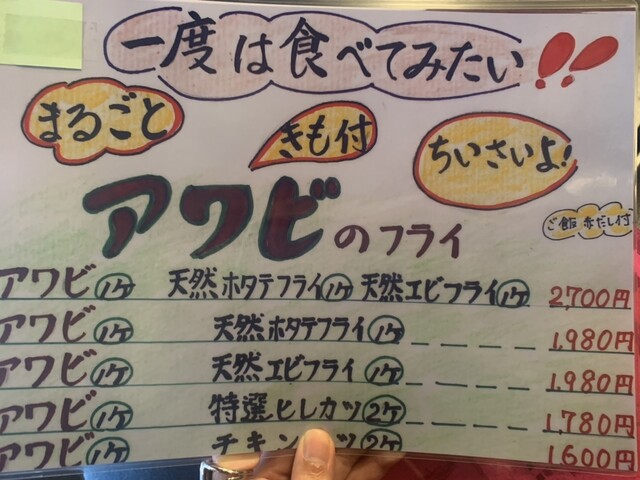 一度は食べてみたい!!
まるごと
きも付
ちいさいよ!
アワビのフライ
ご飯 赤だし付
アワビ1ケ 天然ホタテフライ1ケ 天然エビフライ1ケ 2,700円
アワビ1ケ 天然ホタテフライ1ケ 1,980円
アワビ1ケ 天然エビフライ1ケ 1,980円
アワビ1ケ 特選ヒレカツ2ケ 1,780円
アワビ1ケ チキン ツ2ケ 1,600円